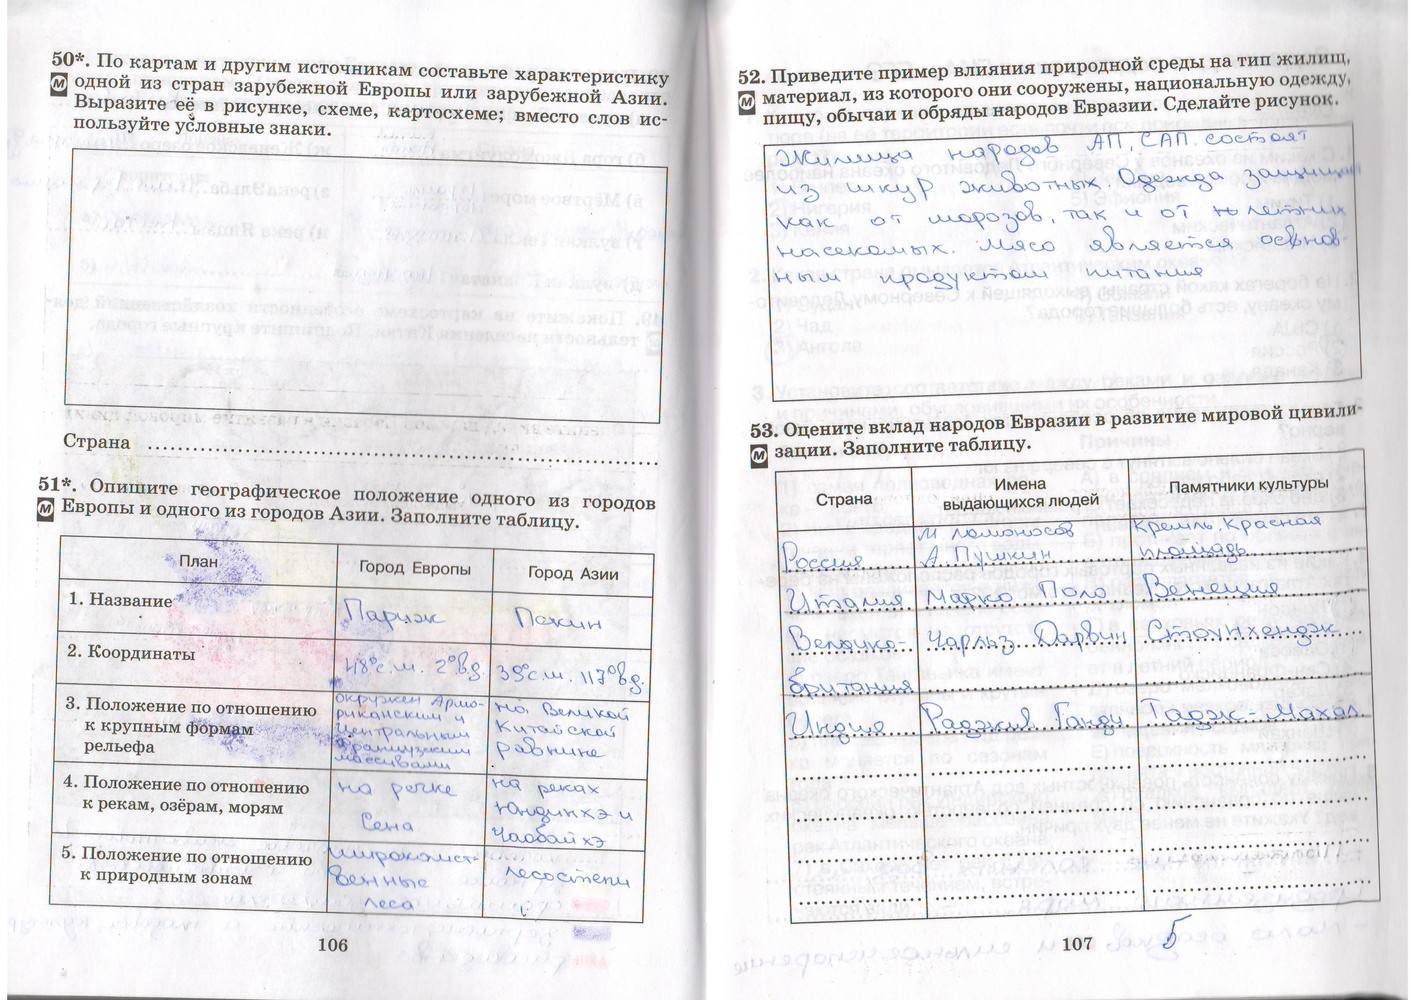 50*. По картам и другим источникам составьте характеристику
М одной из стран зарубежной Европы или зарубежной Азии.
Выразите её в рисунке, схеме, картосхеме; вместо слов ис-
пользуйте условные знаки.
Страна
51*. Опишите географическое положение одного из городов
М Европы и одного из городов Азии. Заполните таблицу.
План Город Европы Город Азии
1. Название Париж Пекин
2. Координаты 48°с.ш. 2°вд. 39°с.ш. 117°вд.
3. Положение по отношению
к крупным формам
рельефа
окружен Армо-
риканским и
Центральным
Французским
массивами
на Великой
Китайской
равнине
4. Положение по отношению
к рекам, озёрам, морям
на речке
Сена
на реках
Юндинхэ и
Чаобайхэ
5. Положение по отношению
к природным зонам
широколист-
венные
леса
лесостепи
106
52. Приведите пример влияния природной среды на тип жилищ,
М материал, из которого они сооружены, национальную одежду,
пищу, обычаи и обряды народов Евразии. Сделайте рисунок.
Жилища народов АП, САП. состоят
из шкур животных. Одежда защищает
как от морозов, так и от летних
насекомых. Мясо является основ-
ным продуктом питания
53. Оцените вклад народов Евразии в развитие мировой цивили-
М зации. Заполните таблицу.
Страна Имена
выдающихся людей Памятники культуры
Россия М. Ломоносов
А. Пушкин Кремль, Красная
площадь
Италия Марко Поло Венеция
Велико-
британия Чарльз Дарвин Стоунхендж
Индия Раджив Ганди Тадж-Махал
107
5